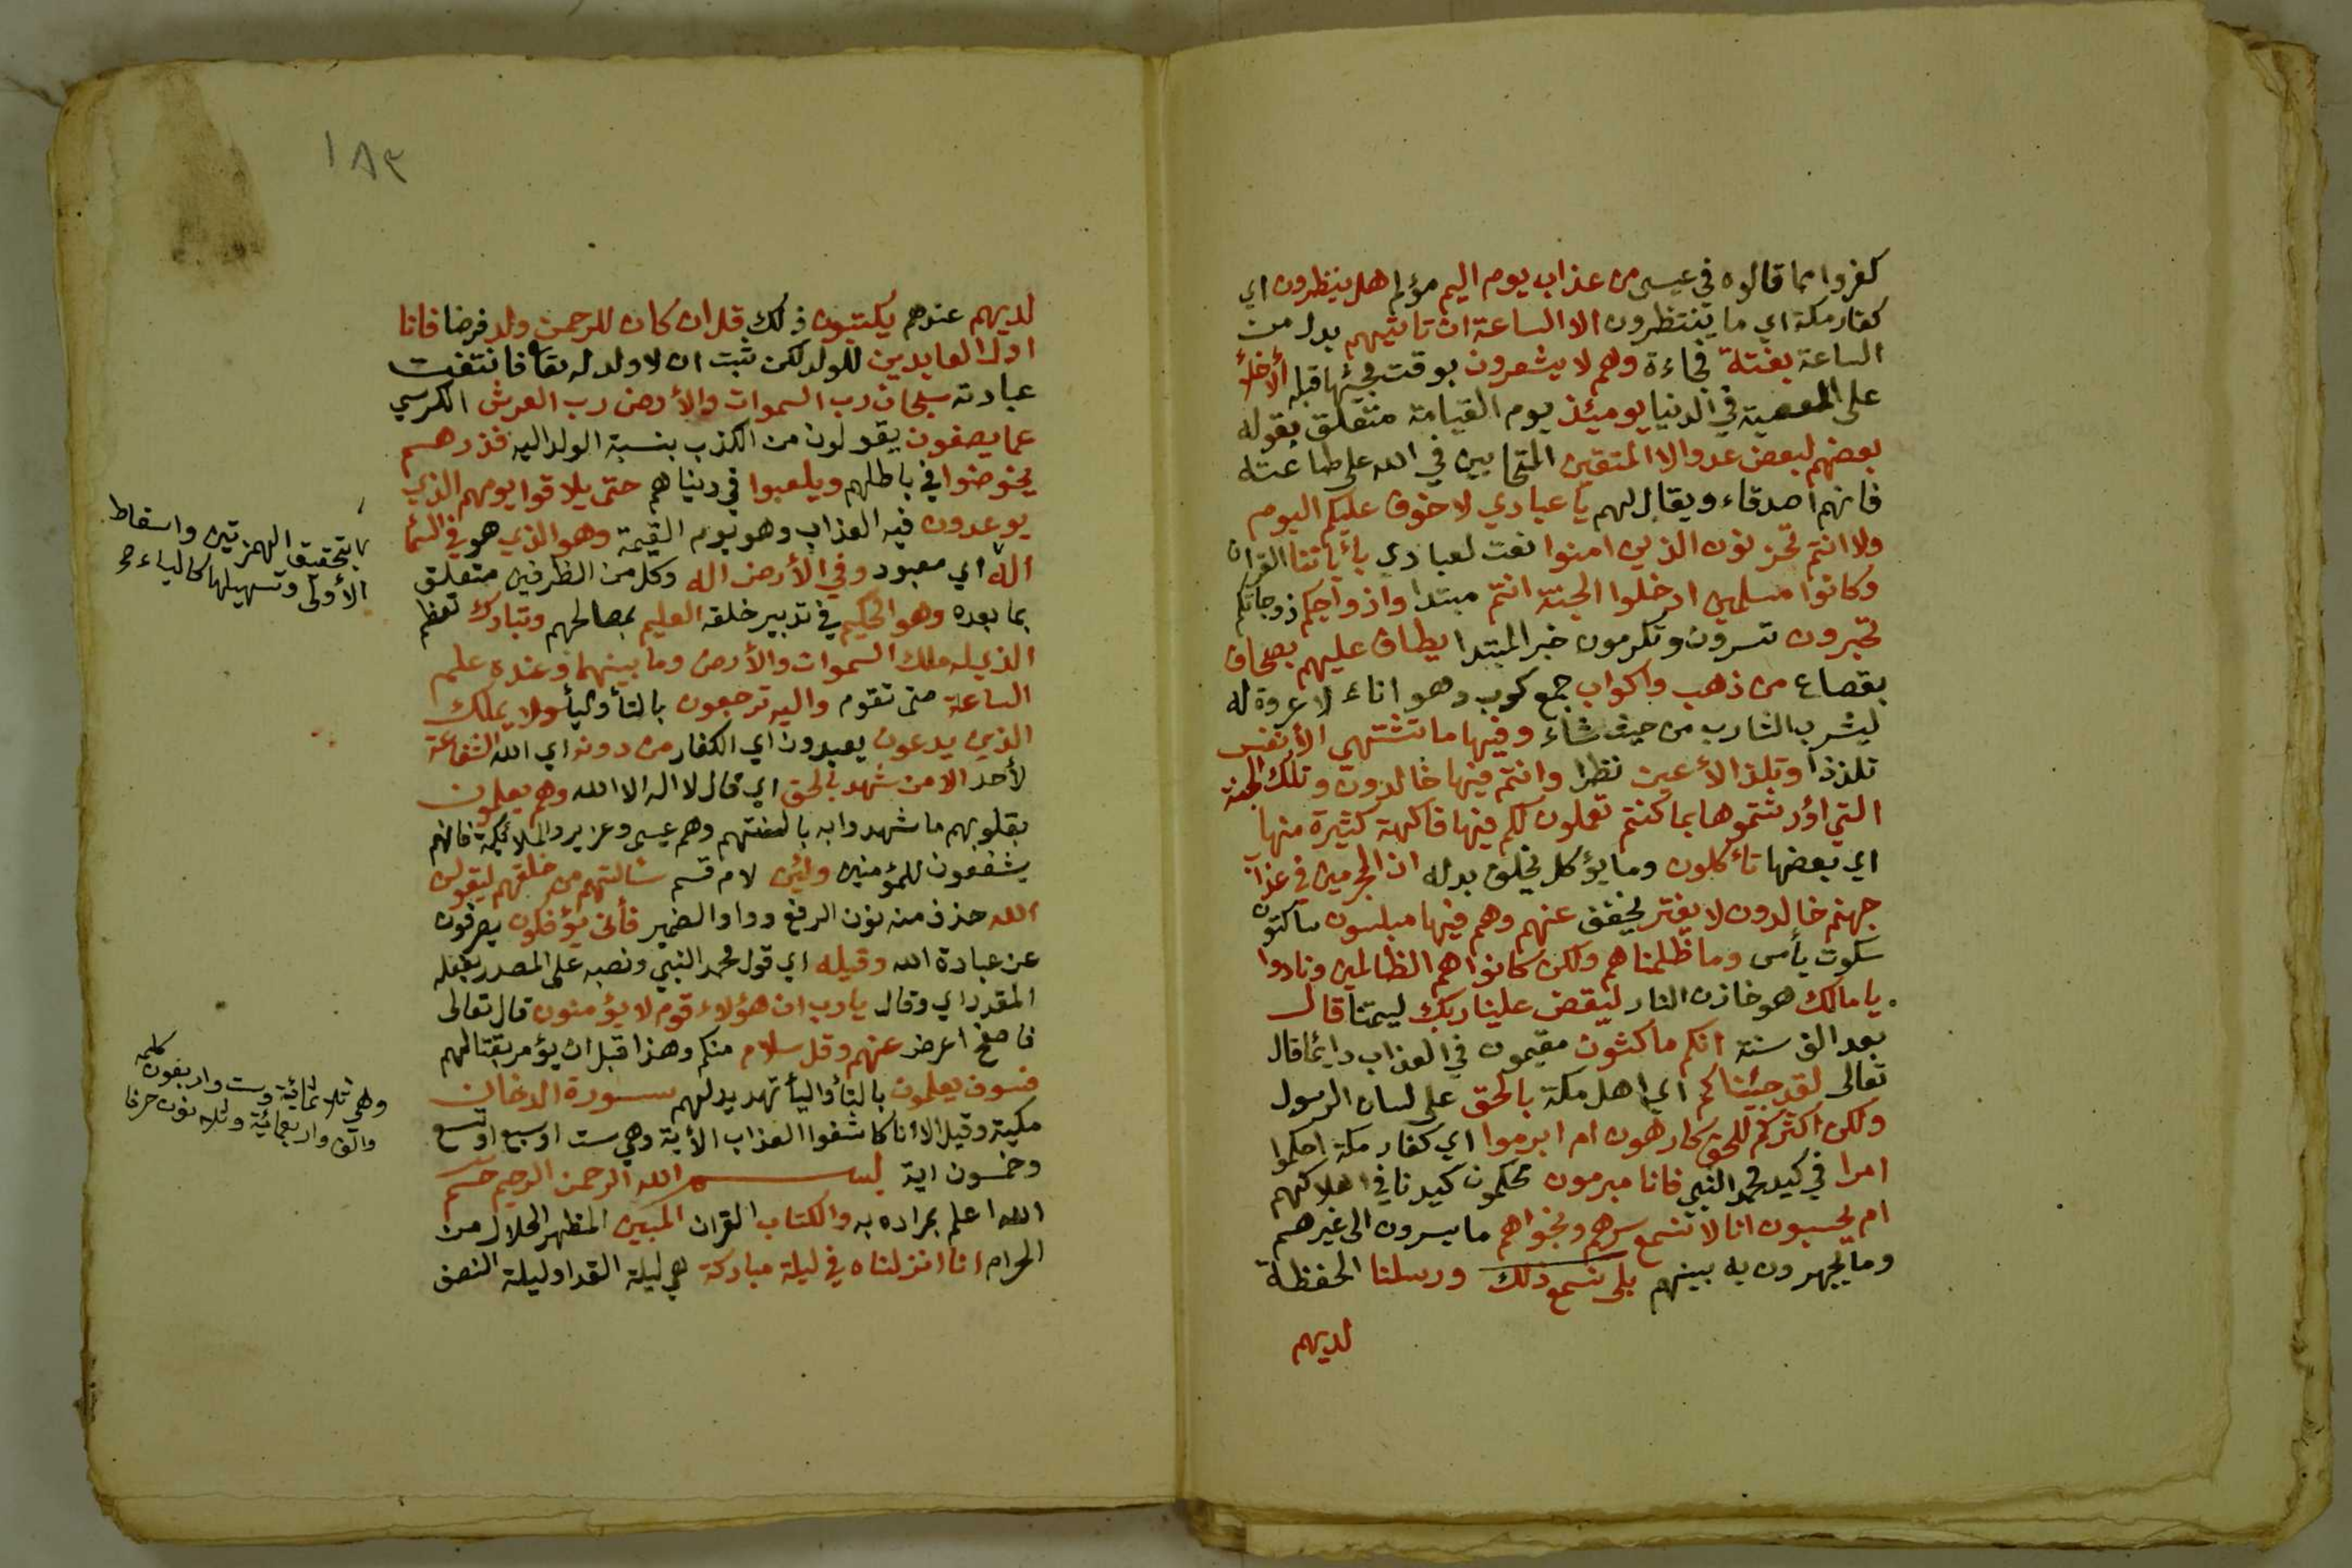 كفروا مما قالوه في عيسى من عذاب يوم اليم مؤلم هل ينظرون اي
كفار مكة اي ما ينتظرون الا الساعة ان تاتيهم بدل من
الساعة بغتة فجاءة وهم لا يشعرون بوقت مجيئها قبله الأخلأ
على المعصية في الدنيا يوميئذ يوم القيامة متعلق بقوله
بعضهم لبعض عدو الا المتقين المتحابين في الله على طاعته
فانهم اصدقاء ويقال لهم يا عبادي لا خوف عليكم اليوم
ولا انتم تحزنون الذين امنوا نعت لعبادي بأياتنا القران
وكانوا مسلمين ادخلوا الجنة انتم مبتدا وازواجكم زوجاتكم
تحبرون تسرون وتكرمون خبر المبتدا يطاف عليهم بصحاف
بقصاع من ذهب واكواب جمع كوب وهو اناء لا عروة له
ليشرب الشارب من حيث شاء وفيها ما تشتهي الأنفس
تلذذا وتلذ الأعين نظرا وانتم فيها خالدون وتلك الجنة
التي اورثتموها بما كنتم تعملون لكم فيها فاكهة كثيرة منها
اي بعضها تأكلون وما يؤكل يخلق بدله ان المجرمين في عذاب
جهنم خالدون لا يفتر يخفف عنهم وهم فيها مبلسون ساكتون
سكوت يأس وما ظلمناهم ولكن كانوا هم الظالمين ونادوا
يا مالك هو خازن النار ليقض علينا ربك ليمتنا قال
بعد الف سنة انكم ماكثون مقيمون في العذاب دايما قال
تعالى لقد جيئناكم اي اهل مكة بالحق على لسان الرسول
ولكن اكثركم للحق كارهون ام ابرموا اي كفار مكة احكموا
امرا في كيد محمد النبي فانا مبرمون محكمون كيدنا في اهلاكهم
ام يحسبون انا لا نسمع سرهم ونجواهم ما يسرون الى غيرهم
وما يجهرون به بينهم بلى نسمع ذلك ورسلنا الحفظة
لديهم
١٨٣
لديهم عندهم يكتبون ذلك قل ان كان للرحمن ولد فرضا فانا
اول العابدين للولد لكن ثبت ان لا ولد له تعا فانتفت
عبادته سبحان رب السموات والأرض رب العرش الكرسي
عما يصفون يقولون من الكذب بنسبة الولد اليه فذرهم
يخوضوا في باطلهم ويلعبوا في دنياهم حتى يلاقوا يومهم الذي
يوعدون فيه العذاب وهو يوم القيمة وهو الذي هو في السما
اله اي معبود وفي الأرض اله وكل من الظرفين متعلق
بما بعده وهو الحكيم في تدبير خلقه العليم بمصالحهم وتبارك تعظم
الذي له ملك السموات والأرض وما بينهما وعنده علم
الساعة متى تقوم واليه ترجعون بالتأ واليأ ولا يملك
الذين يدعون يعبدون اي الكفار من دونه اي الله الشفاعة
لأحد الا من شهد بالحق اي قال لا اله الا الله وهم يعلمون
بقلوبهم ما شهدوا به بالسنتهم وهم عيسى وعزير والملائكة فانهم
يشفعون للمؤمنين ولئن لام قسم سالتهم من خلقهم ليقولن
الله حذف منه نون الرفع وواو الضمير فأنى يؤفكون يصرفون
عن عبادة الله وقيله اي قول محمد النبي ونصبه على المصدر بفعله
المقدر اي وقال يا رب ان هؤلاء قوم لا يؤمنون قال تعالى
فاصفح اعرض عنهم وقل سلام منكم وهذا قبل ان يؤمر بقتالهم
فسوف يعلمون بالتأ واليأ تهديد لهم سورة الدخان
مكية وقيل الا انا كاشفوا العذاب الأية وهي ست او سبع او تسع
وخمسون اية بسم الله الرحمن الرحيم حم
الله اعلم بمراده به والكتاب القران المبين المظهر الحلال من
الحرام انا انزلناه في ليلة مباركة هي ليلة القدر او ليلة النصف
بتحقيق الهمزتين واسقاط
الأولى وتسهيلها كالياء
كلمه
وهي ثلاثمائة وست واربعون
والف واربعمائية وثلاثون حرفا